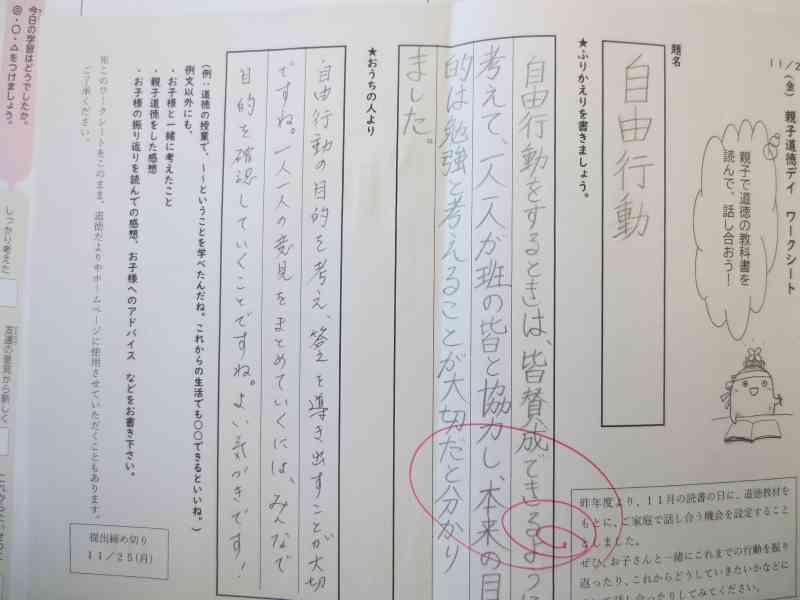 11/2
(金) 親子道徳デイ ワークシート
親子で道徳の教科書を
読んで、話し合おう!
昨年度より、11月の読書の日に、道徳教材を
もとに、ご家庭で話し合う機会を設定すること
しました。
ぜひ、お子さんと一緒にこれまでの行動を振り
返ったり、これからどうしていきたいかなどに
いて話し合ったりしてみてください。
題名
自由行動
★ふりかえりを書きましょう。
自由行動をするときは、皆賛成できるように
考えて、一人一人が班の皆と協力し、本来の目
的は勉強と考えることが大切だと分かり
ました。
★おうちの人より
自由行動の目的を考え、答えを導き出すことが大切
ですね。一人一人の意見をまとめていくには、みんなで
目的を確認していくことですね。よい気づきです!
(例:道徳の授業で、~~ということを学べたんだね。これからの生活でも〇〇できるといいね。)
例文以外にも、
・お子様と一緒に考えたこと
・親子道徳をした感想
・お子様の振り返りを読んでの感想、お子様へのアドバイス などをお書き下さい。
※このワークシートをこのまま、道徳だよりやホームページに使用させていただくこともあります。
ご了承ください。
提出締め切り
11/25(月)
今日の学習はどうでしたか。
◎・〇・△をつけましょう。
しっかり考えた
友達の意見から新しく